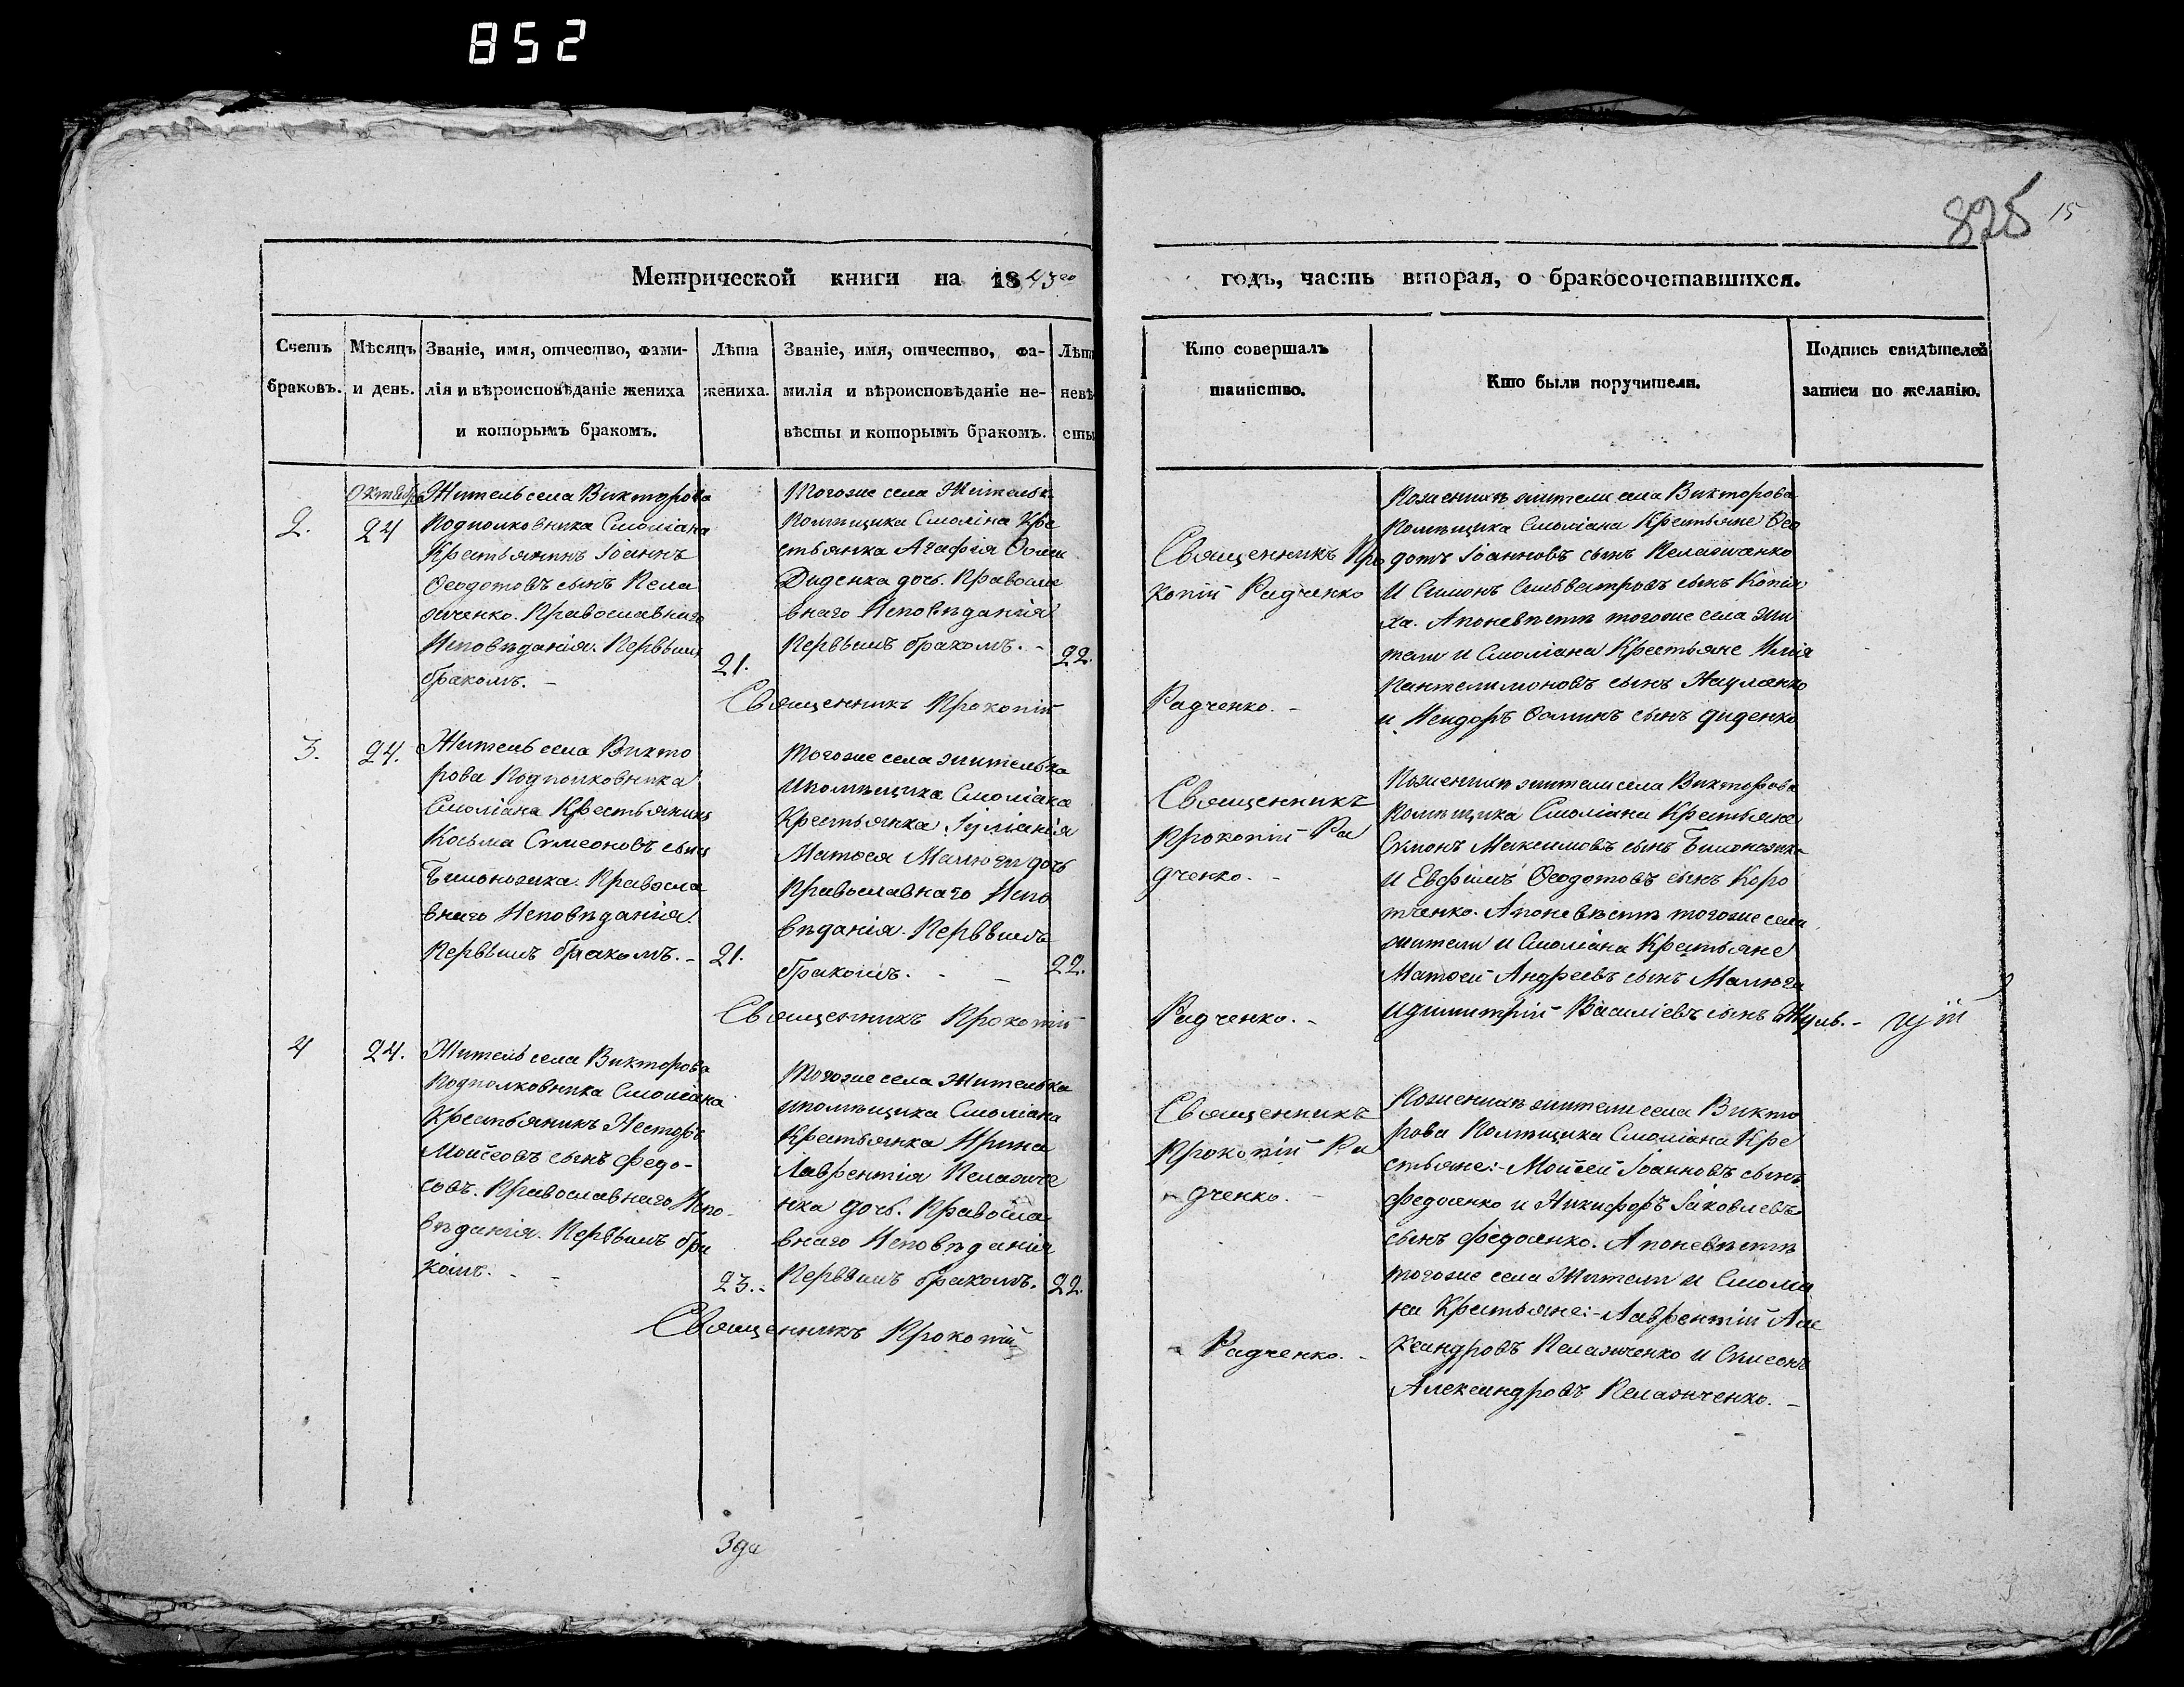 852
825 15
Метрической книги на 1843го
годъ, часть вторая, о бракосочетавшихся.
Счетъ
браковъ.
Мѣсяцъ
и день.
Званіе, имя, отчество, фами-
лія и вѣроисповѣданіе жениха
и которымъ бракомъ.
Лѣта
жениха.
Званіе, имя, отчество, фа-
милія и вѣроисповѣданіе не-
вѣсты и которымъ бракомъ.
Лѣта
невѣ
сты
Кто совершалъ
таинство.
Кто были поручители.
Подпись свидѣтелей
записи по желанію.
Октябр
2.
24
Житель села Викторова
Подполковника Смоліана
Крестьянинъ Іоаннъ
Ѳеодотовъ сынъ Кела
жченко. Православнаго
Исповѣданія. Первымъ
бракомъ. –
21.
Тогоже села Жителька
Помѣщика Смоліна Кре
стьянка Агафія Ѳомы
Диденка дочь. Правосла
внаго Исповѣданія
Первымъ бракомъ. –
22.
Священникъ Прокопій
Священникъ Про
копій Радченко
Радченко. –
Поженихѣ жители села Викторова
Помѣщика Смоліана Крестьяне Ѳео
дотъ Іоанновъ сынъ Келажченко
И Симонъ Сильвестровъ сынъ
ха. А поневѣстѣ тогоже села жи
тели и Смоліана Крестьяне Илія
Пантелимоновъ сынъ Науменко
и Исидоръ Ѳоминъ сынъ Диденко
3.
24.
Житель села Викто
рова Подполковника
Смоліана Крестьянинъ
Косьма Симеоновъ сынъ
Билоножка. Правосла
внаго Исповѣданія.
Первымъ бракомъ. –
21.
Тогоже села жителька
Ипомѣщика Смоліана
Крестьянка Іуліанія
Матѳея Малюги дочь
Православнаго Испо
вѣданія. Первымъ
бракомъ. – –
22.
Священникъ Прокопій
Священникъ
Прокопій Ра
дченко. –
Радченко. –
Поженихѣ жители села Викторова
Помѣщика Смоліана Крестьяне
Симонъ Максимовъ сынъ Билоножка
И Евфимъ Ѳеодотовъ сынъ Коро
тченко. А поневѣстѣ тогоже села
жители и Смоліана Крестьяне
Матѳей Андреевъ сынъ Малюга
Идимитрій Василіевъ сынъ
4
24.
Житель села Викторова
Подполковника Смоліана
Крестьянинъ Несторъ
Моисеовъ сынъ Федо-
совъ. Православнаго Испо-
вѣданія. Первымъ бра
комъ. – –
23.-
Тогоже села Жителька
ипомѣщика Смоліана
Крестьянка Ирина
Лаврентія Келажче
нка дочь. Правосла
внаго Исповѣданія
Первымъ бракомъ.
22.
Священникъ Прокопій
Священникъ
Прокопій Ра
дченко. –
Радченко. –
Поженихѣ жители села Викто
рова Помѣщика Смоліана Кре
стьяне:- Моисей Іоанновъ сынъ
Федоенко и Никифоръ Іаковлевъ
сынъ Федоенко. А поневѣстѣ
тогоже села Жители и Смоліа
на Крестьяне:- Лаврентій Але
ксандровъ Келажченко и Симеонъ
Александровъ Келажченко. –